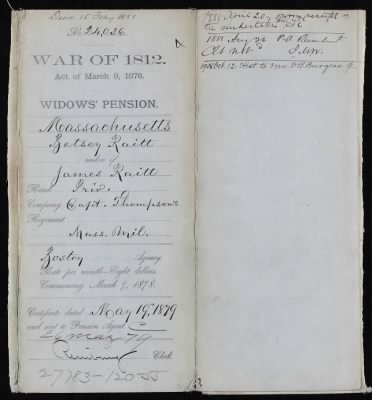 Dead 15 Feby 1881
No. 24,036
WAR OF 1812.
Act of March 9, 1878.
WIDOWS' PENSION.
Massachusetts
Betsey Raitt
widow of
James Raitt
Rank Priv.
Company Capt. Thompson's
Regiment
Mass. Mil.
Boston Agency
Rate per month—Eight dollars
Commencing March 9, 1878.
Certificate dated May 19, 1879
and sent to Pension Agent
26 May 79
Clerk.
27783-120-55
1881 April 20
the
1881 Aug 26
1918 Oct. 12. Hist to Mrs. H B Burgess